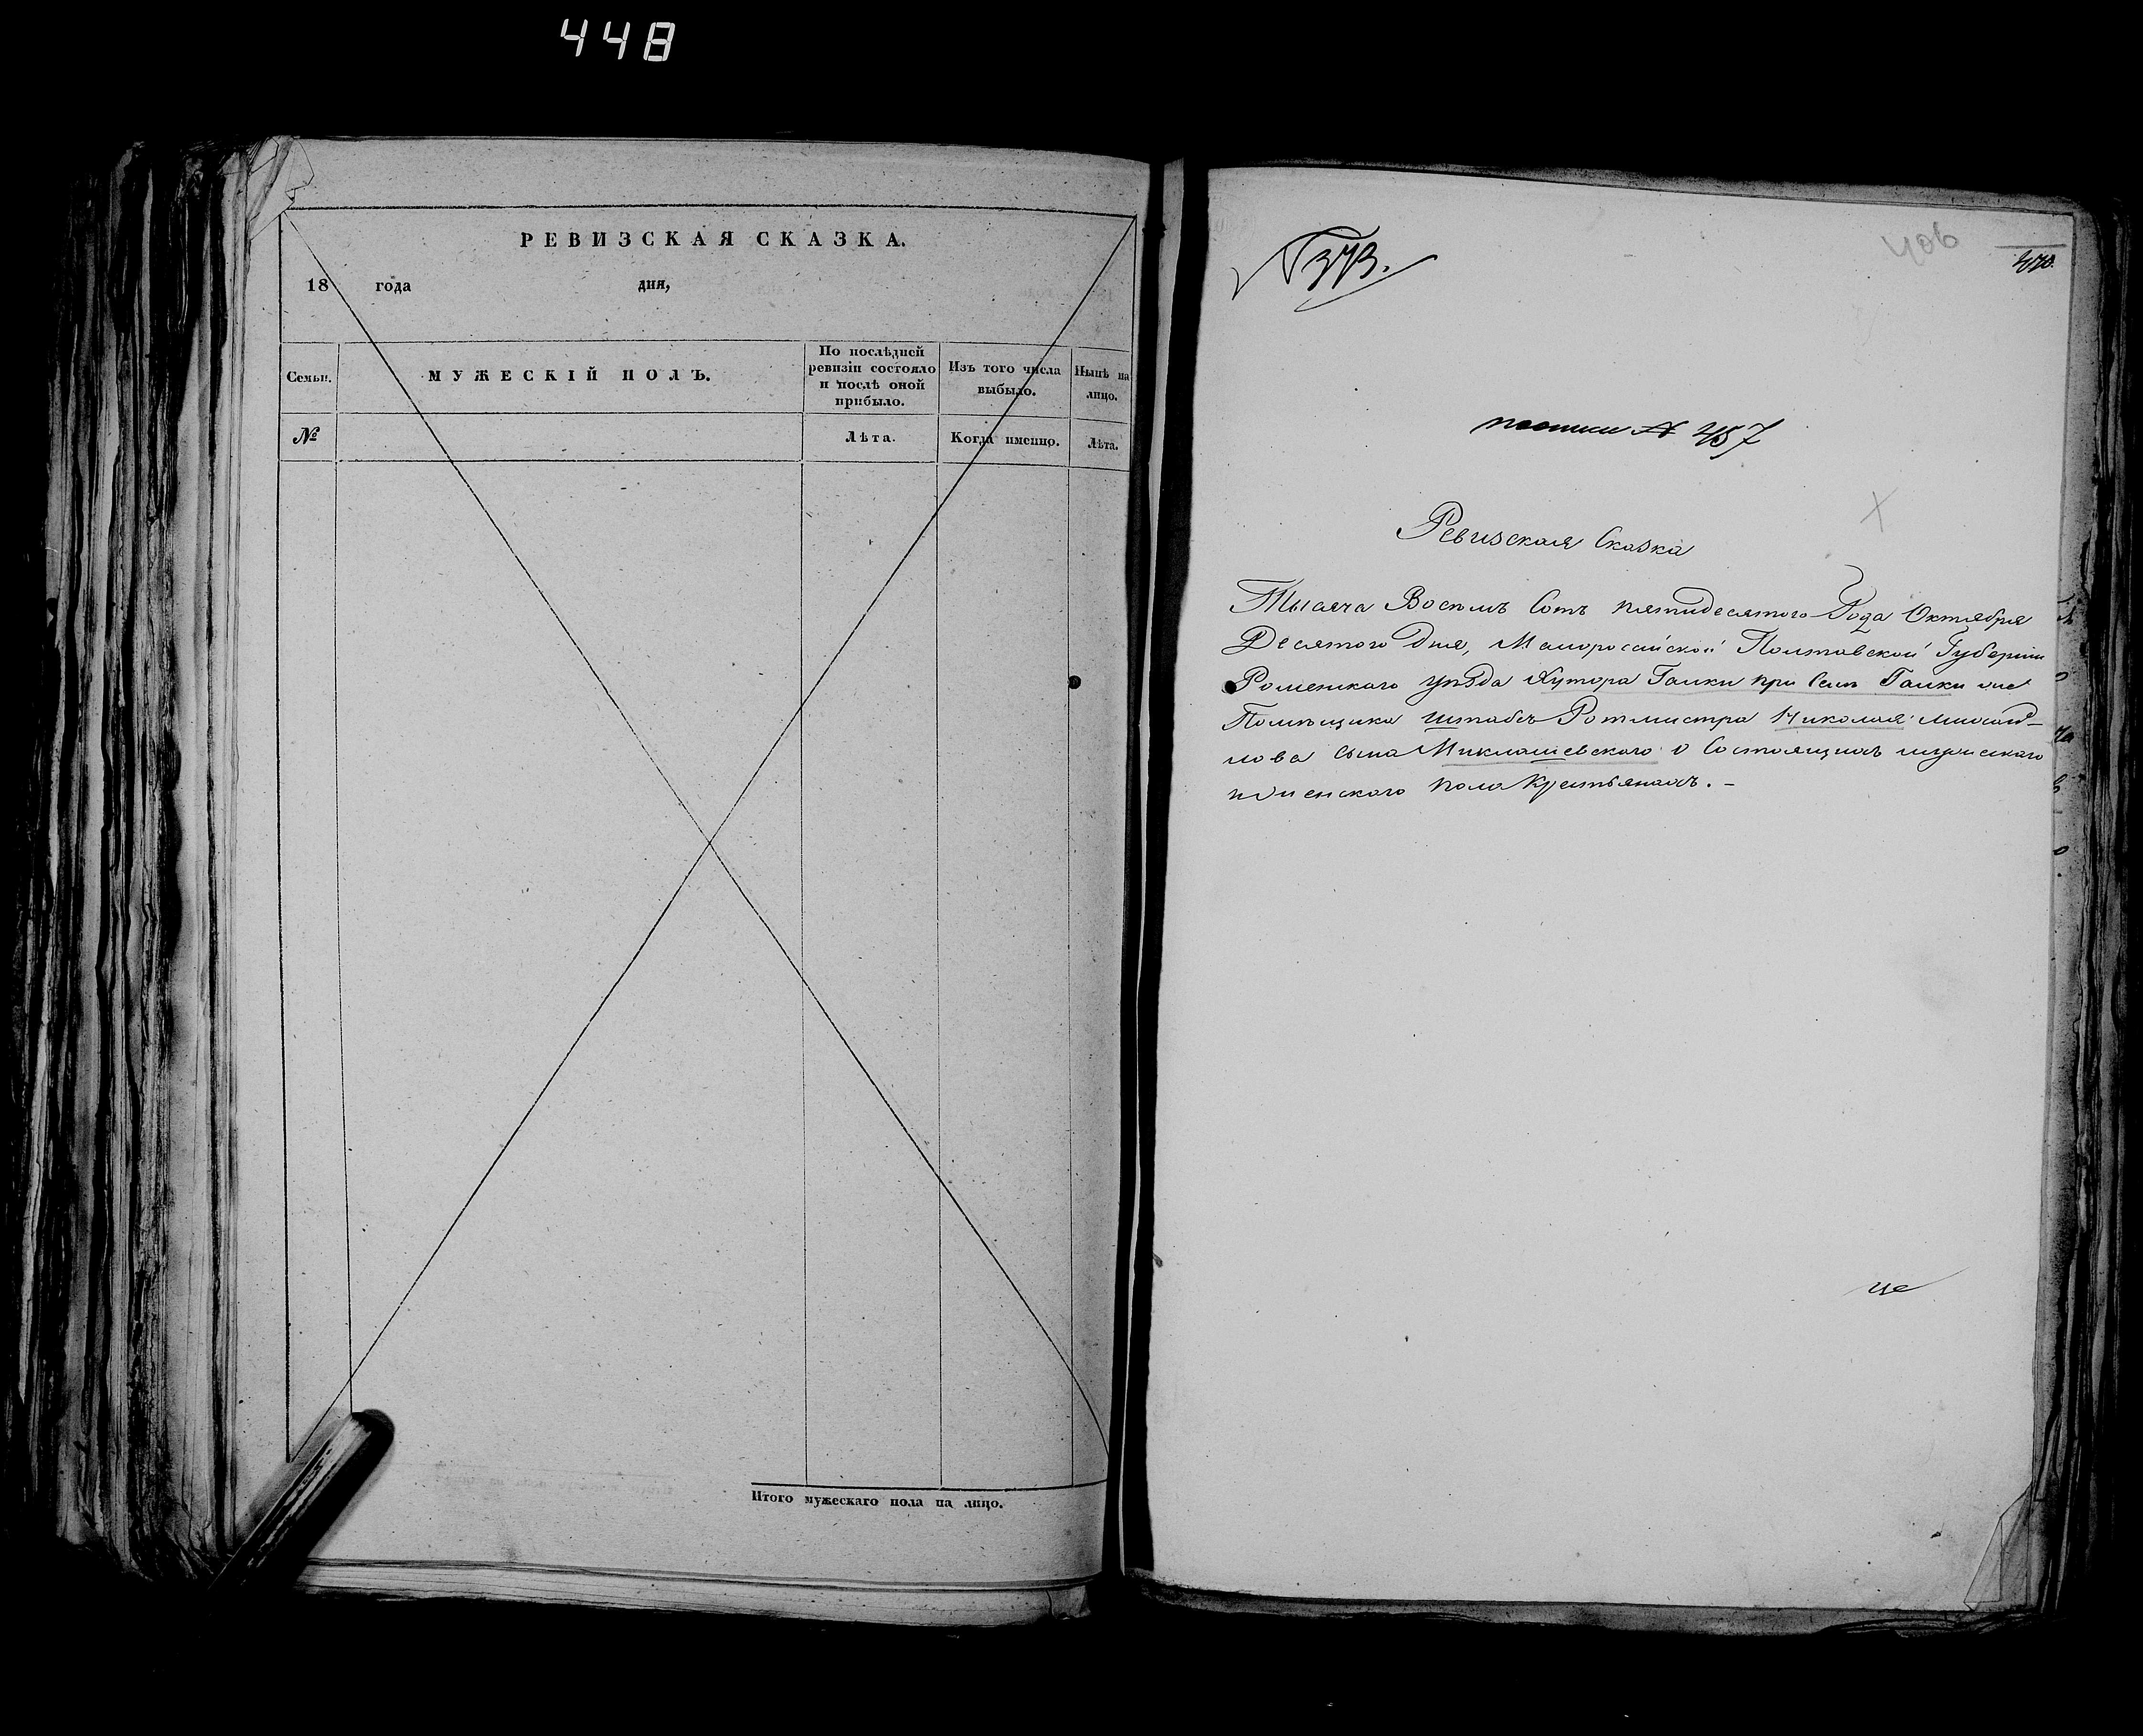 448
РЕВИЗСКАЯ СКАЗКА.
18 года дня,
Семьи.
МУЖЕСКІЙ ПОЛЪ.
По послѣдней ревизіи состояло и послѣ оной прибыло.
Изъ того числа выбыло.
Нынѣ на лицо.
№
Лѣта.
Когда именно.
Лѣта.
Итого мужескаго пола на лицо.
№ 373.
406
№ 457
Ревизская Сказка
Тысяча Восемь Сотъ пятидесятого Года Октября
Десятого Дня, Малоросийской Полтавской Губерніи
Роменского уѣзда Хутора Галки при Селѣ Галки
Помѣщика Штабсъ Ротмистра Николая
сына Миклашевского о Состоящихъ мужеского
и женского пола Крестьянахъ. –